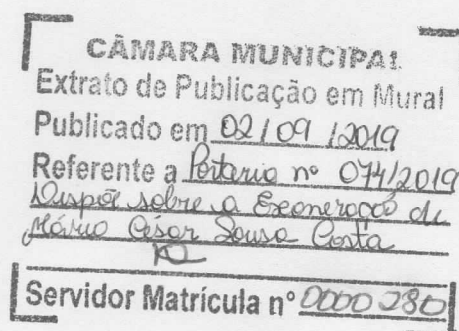 CÂMARA MUNICIPAL
Extrato de Publicação em Mural
Publicado em 02/09/2019
Referente a Portaria nº 074/2019
Dispõe sobre a Exoneração de
Mário César Sousa Costa
Servidor Matrícula nº 0000280